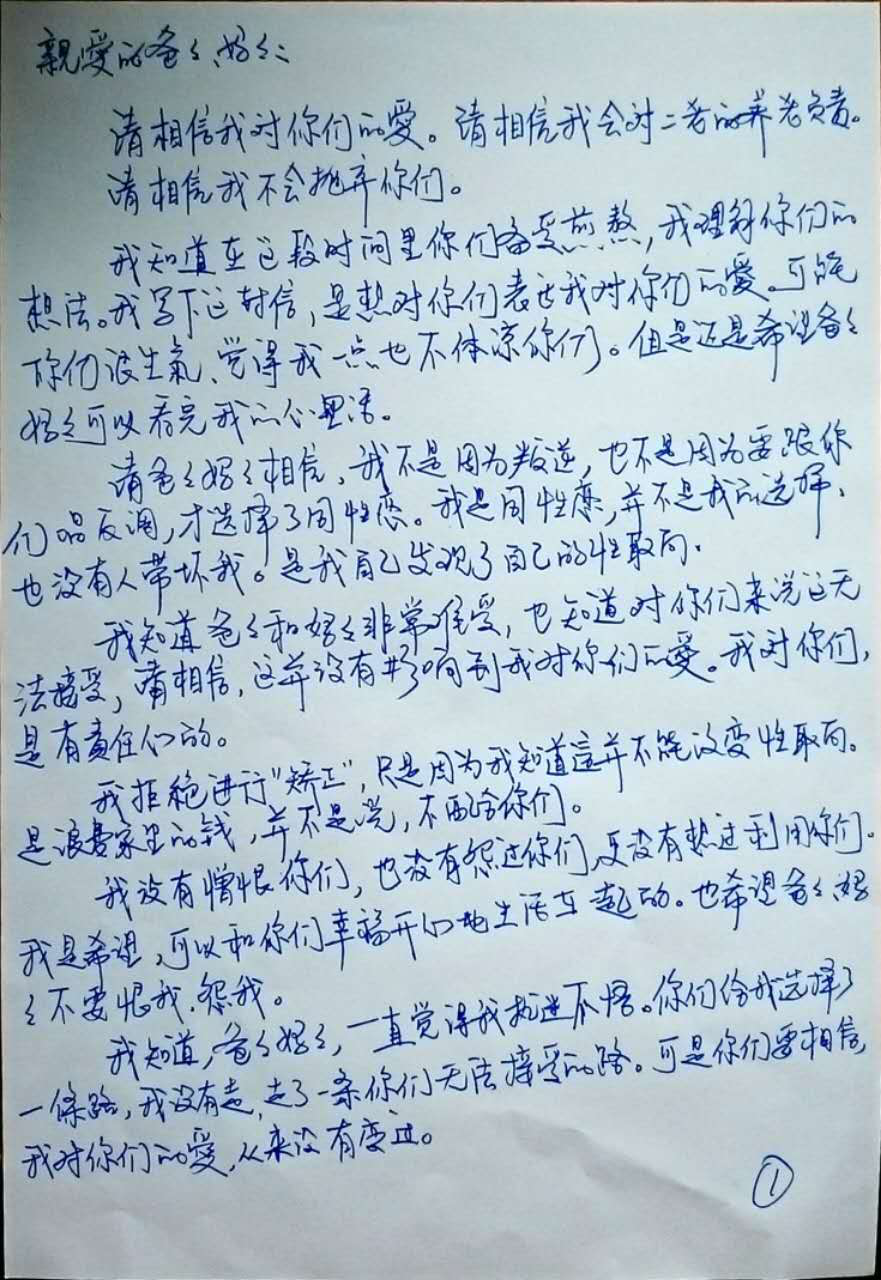 亲爱的爸々、妈々：
请相信我对你们的爱。请相信我会对二老的养老负责。
请相信我不会抛弃你们。
我知道在这段时间里你们备受煎熬，我理解你们的
想法。我写下这封信，是想对你们表达我对你们的爱。可能
你们很生氣、觉得我一点也不体凉你们。但是还是希望爸々
妈々可以看完我的心里话。
请爸々妈々相信，我不是因为叛逆，也不是因为要跟你
们唱反调，才选择了同性恋。我是同性恋，并不是我的选择，
也没有人带坏我。是我自己发现了自己的性取向.
我知道爸々和妈々非常难受，也知道对你们来说这无
法接受，请相信，这并没有影响到我对你们的爱。我对你们，
是有责任心的。
我拒絶进行“矫正”，只是因为我知道這并不能改变性取向。
是浪费家里的钱，并不是说，不配合你们。
我没有憎恨你们，也没有怨过你们，更没有想过利用你们。
我是希望，可以和你们幸福开心地生活在一起的。也希望爸々、妈
々不要恨我.怨我。
我知道，爸々妈々，一直觉得我执迷不悟。你们给我选择了
一條路，我没有走，走了一条你们无法接受的路。可是你们要相信，
我对你们的爱，从来没有变过。
①